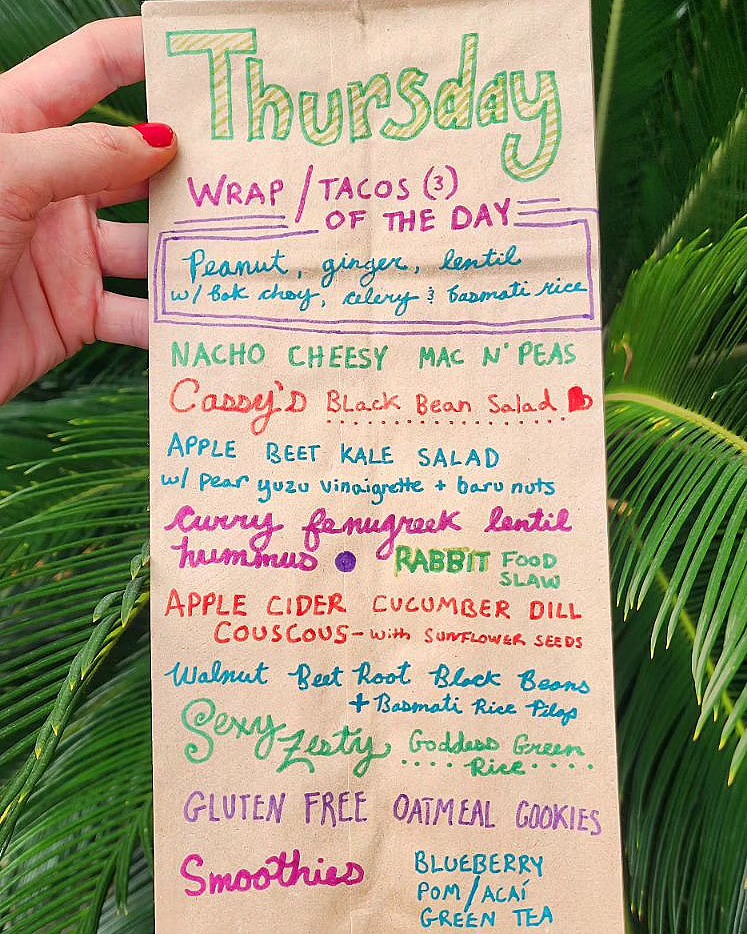 Thursday
WRAP / TACOS (3)
OF THE DAY
Peanut, ginger, lentil
w/ bok choy, celery & basmati rice
NACHO CHEESY MAC N' PEAS
Cassy's Black Bean Salad
APPLE BEET KALE SALAD
w/ pear yuzu vinaigrette + baru nuts
Curry fenugreek lentil
hummus • RABBIT FOOD
SLAW
APPLE CIDER CUCUMBER DILL
COUSCOUS - with SUNFLOWER SEEDS
Walnut Beet Root Black Beans
+ Basmati Rice Pilaf
Sexy Zesty Goddess Green
Rice
GLUTEN FREE OATMEAL COOKIES
Smoothies BLUEBERRY
POM / ACAÍ
GREEN TEA